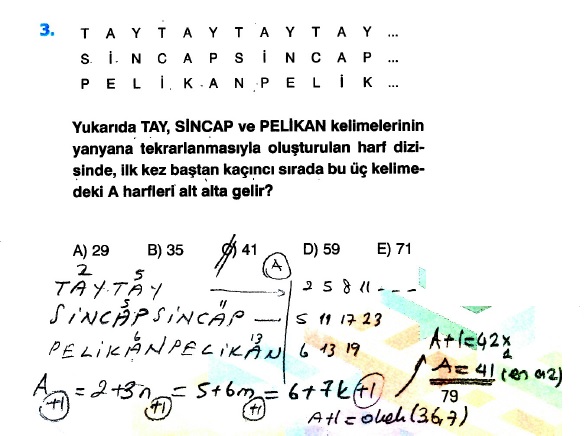 3. T A Y T A Y T A Y T A Y ...
S İ N C A P S İ N C A P ...
P E L İ K A N P E L İ K ...
Yukarıda TAY, SİNCAP ve PELİKAN kelimelerinin
yanyana tekrarlanmasıyla oluşturulan harf dizi-
sinde, ilk kez baştan kaçıncı sırada bu üç kelime-
deki A harfleri alt alta gelir?
A) 29 B) 35 C) 41 D) 59 E) 71
2 5 A
TAYTAY 2 5 8 11 - - -
5 11
SİNCAPSİNCAP — 5 11 17 23
6 13
PELİKANPELİKAN 6 13 19
A+1=42x
A = 41 (en az)
79
A+1 = 2+3n+1 = 5+6m+1 = 6+7k+1
A+1 = okek(3,6,7)